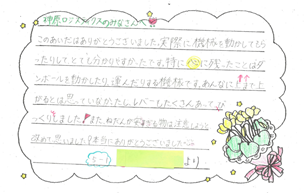 神原ロジスティクスのみなさんへ
このあいだはありがとうございました。実際に機械を動かしてもら
ったりしてとても分かりやすかったです。特に心に残ったことはダ
ンボールを動かしたり、運んだりする機械です。あんなに
がるとは思っていなかったし、レバーもたくさんあって、び
っくりしました。また、ねだんが物は注意しようと
改めて思いました。本当にありがとうございました。
5-1 より